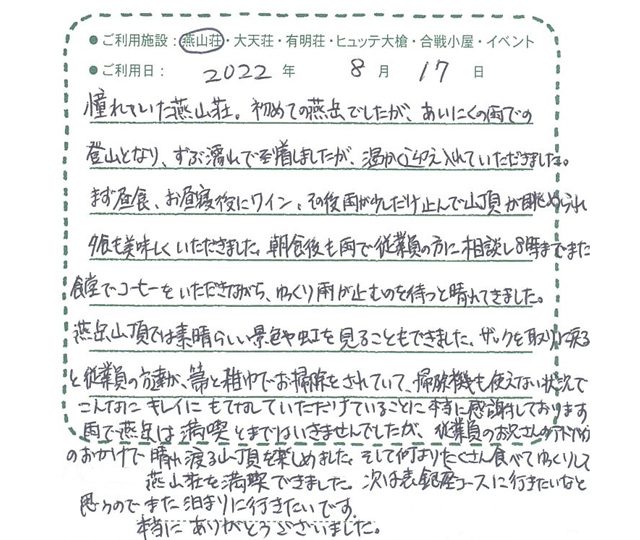 ● ご利用施設：燕山荘・大天荘・有明荘・ヒュッテ大槍・合戦小屋・イベント
● ご利用日： 2022 年 8 月 17 日
憧れていた燕山荘。初めての燕岳でしたが、あいにくの雨での
登山となり、ずぶ濡れで到着しましたが、温かく迎え入れていただきました。
まず昼食、お昼寝後にワイン、その後雨が少しだけ止んで山頂が眺められ
夕食も美味しくいただきました。朝食後も雨で従業員の方に相談し8時までまた
食堂でコーヒーをいただきながら、ゆっくり雨が止むのを待つと晴れてきました。
燕岳山頂では素晴らしい景色や虹を見ることもできました。ザックを取りに戻る
と従業員の方達が、箒と雑巾でお掃除をされていて、掃除機も使えない状況で
こんなにキレイにもてなしていただけていることに本当に感謝しております
雨で燕岳は満喫とまではいきませんでしたが、従業員のお兄さんのアドバイス
のおかげで晴れ渡る山頂を楽しめました。そして何よりたくさん食べてゆっくりして
燕山荘を満喫できました。次は表銀座コースに行きたいなと
思うのでまた泊まりに行きたいです。
本当にありがとうございました。